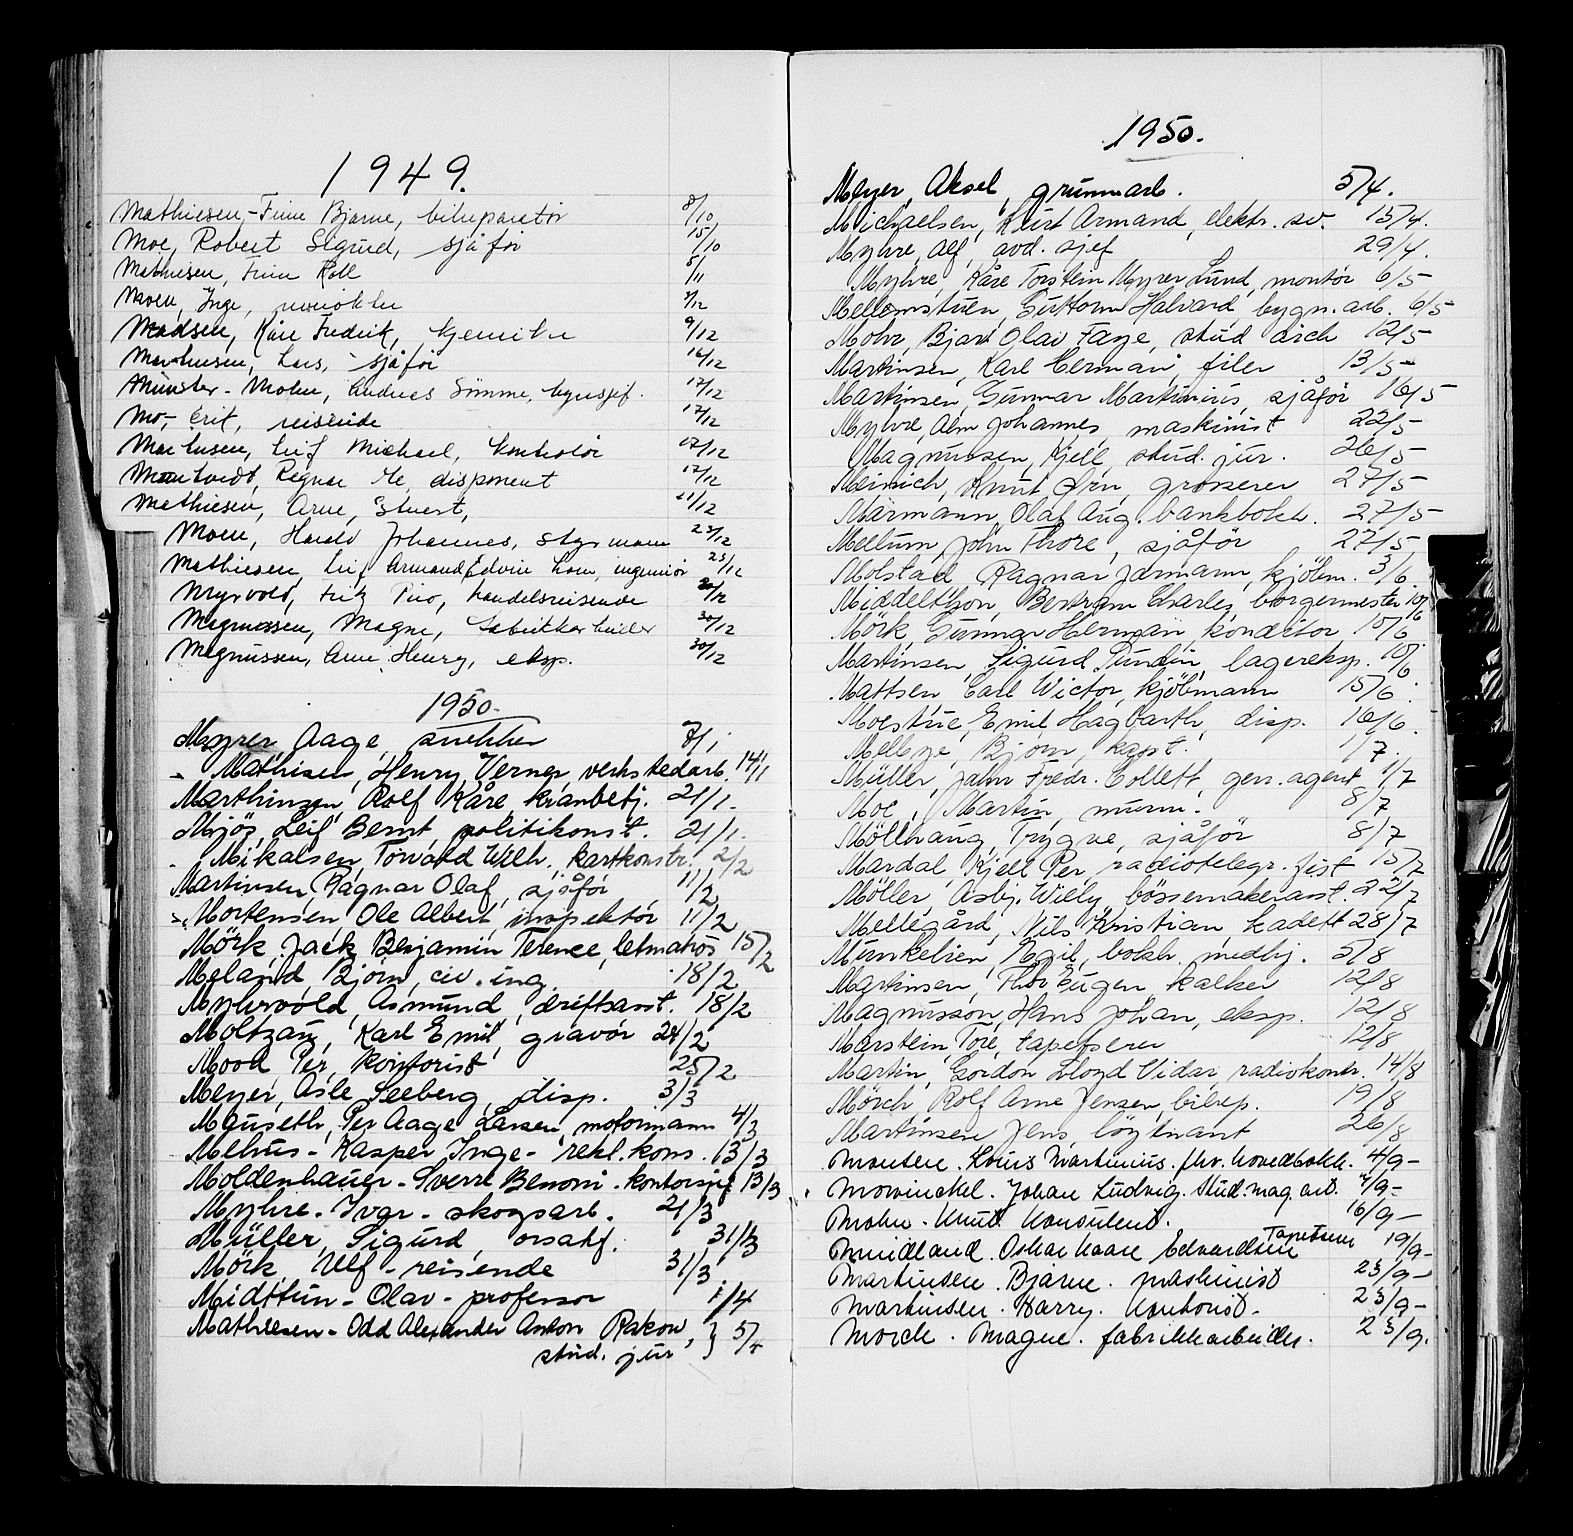 1949.
Mathiesen, - Finn Bjarne, bilreparatør 8/10
Moe, Robert Sigurd, sjåfør 15/10
Mathiesen, Finn Roll 5/11
Moen, Inge, 3/12
Madsen, Kåre Fredrik, kjemiker 9/12
Marthinsen, Lars, - sjåfør 16/12
Münster - Mohn, Andreas Sømme, byråsjef. 17/12
Mo, - Erik, reisende 17/12
Marthinsen, Leif Michael, kontrolør 17/12
Ragnar disponent 17/12
Mathiesen, Arne, Stuert, 21/12
Moen, Harald Johannes, styrmann 23/12
Mathiesen, Leif Armand Edvin Lom, ingeniør 23/12
Myrvold, Fritz handelsreisende 30/12
Magnussen, Magne, fabrikkarbeider 30/12
Magnussen, Arne Henry, eksp. 30/12
1950.
Myrer, Aage, snekker 7/1
Mathisen, Henry Verner, verkstedarb. 14/1
Marthinsen, Rolf Kåre, kranbetj. 21/1.
Mjös, Leif Bernt, politikonst. 21/1.
Mikalsen, Torvald Wilh. kartkonstr. 2/2
Martinsen, Ragnar Olaf, sjåför 11/2
Mortensen, Ole Albert, inspektör 11/2
Mörk, Jack Benjamin Terence, letmatros 15/2
Meland, Björn, civ. ing. 18/2
Myhrvold, Asmund, driftsasst. 18/2
Moltzau, Karl Emil, gravör 24/2
Mood Per, kontorist 25/2
Meyer, Asle Seeberg, disp. 3/3
Mauseth, Per Aage Larsen, motormann 4/3
Melhus - Kasper Inge - rekl. kons. 13/3
Moldenhauer - Sverre Benoni - kontorsjef 13/3
Myhre - Ivar - skogsarb. 21/3
Müller, Sigurd, orsakf. 31/3
Mörk Ulf - reisende 31/3
Midttun - Olav - professor 1/4
Mathiesen - Odd Alexander Anton Rakow, } 5/4
stud. jur
1950.
Meyer, Aksel, grunnarb. 5/4.
Michaelsen, Kurt Armand, elektr. sv. 15/4.
Myhre, Alf, avd. sjef 29/4.
Myhre, Kåre Torstein Myrer Lund, montör 6/5
Mellemstuen, Guttorm Halvard bygn. arb. 6/5
Mohr, Bjart Olav Faye, stud arch 12/5
Martinsen, Karl Herman, filer 13/5
Martinsen, Gunnar Martinius, sjåför 16/5
Myhre, Johannes, maskinist 22/5
Magnussen, Kjell, stud. jur. 26/5
Meinich, Knut Örn, grosserer 27/5
Marmann, Olaf Aug. bankbokh. 27/5
Mellum, John Thore, sjåför 27/5
Molstad Ragnar Jarmann, kjöbm. 3/6
Middelthon, Bertram Charles, borgermester 10/6
Mörk, Gunnar Herman, konditor 10/6
Martinsen, Sigurd Sundin, lagereksp. 10/6
Mattsen, Carl Wictor, kjöbmann 15/6
Moestue, Emil Hagbarth, disp. 16/6.
Melbye, Bjorn, kapt. 1/7.
Müller, Jahn Fredr. Collett, gen. agent 1/7
Moe, Martin, murm. 8/7
Möllhaug, Trygve, sjåför 8/7
Mardal, Kjell Per, radiotelegr.fist 15/7
Möller, Asbj. Willy, bössemakerasst. 22/7
Mellegård, Nils Kristian, kadett 28/7
Munkelien, Egil, bokh. medhj. 5/8
Martinsen, Thor Eugen kalker 12/8
Magnusson, Hans Johan, eksp. 12/8
Marstein, Tore, tapetserer 12/8
Martin, Gordon Lloyd Vidar, radiokontr. 14/8
Mörch, Rolf Arne Jensen, bilrep. 19/8
Martinsen, Jens, löytnant 26/8
Monsen. Louis Martinius. fhv. hovedbokh. 4/9-
Mowinckel. Johan Ludvig. Stud. mag. art. 7/9-
Mohn. Knut Konsulent. 16/9-
Midland. Oskar Kaare Edvardsen Tapetserer 19/9-
Martinsen. Bjarne. maskinist 23/9-
Martinsen. Harry. Kontorist- 23/9-
Morck. Magne. fabrikkarbeider. 23/9.